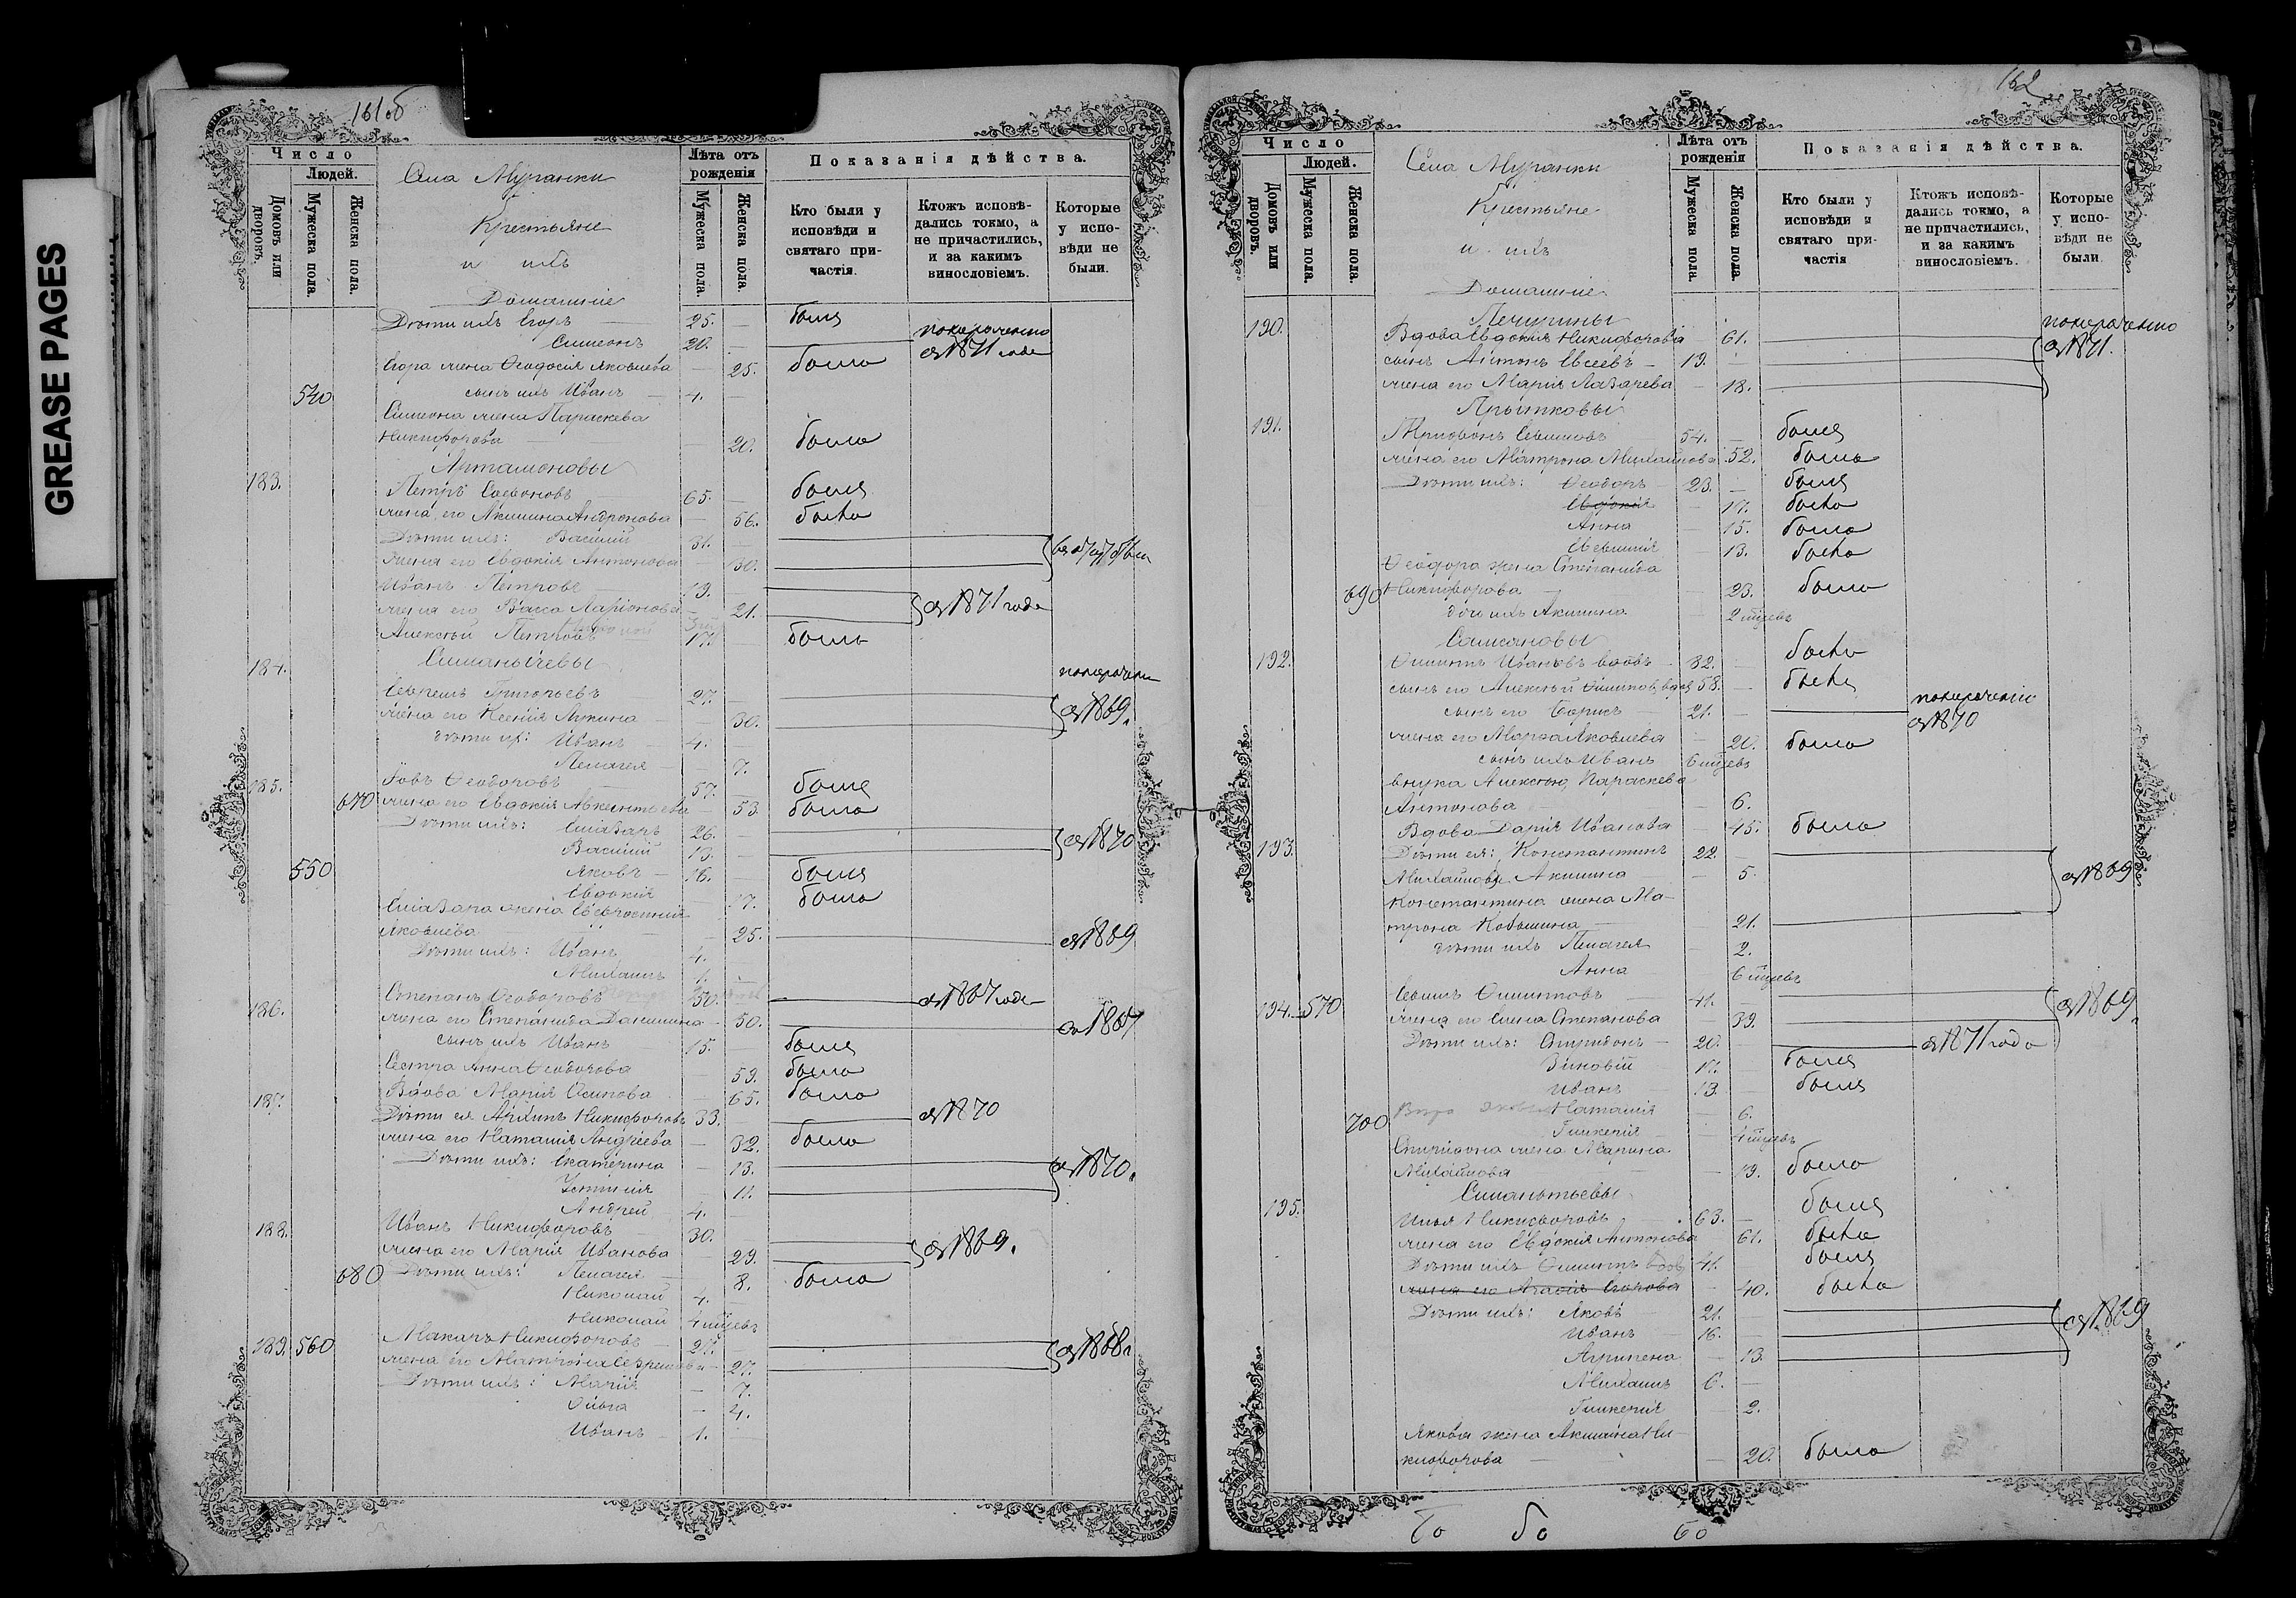 GREASE PAGES
161об
Число
Людей.
Домовъ или дворовъ.
Мужеска пола.
Женска пола.
Села Муранки
Крестьяне
и ихъ
Домашніе
Лѣта отъ рожденія
Мужеска пола.
Женска пола.
Показанія дѣйства.
Кто были у исповѣди и святаго при-
частія.
Ктожъ исповѣ-
дались токмо, а не причастились, и за какимъ винословіемъ.
Которые у испо-
вѣди не были.
Дѣти ихъ Егоръ 25. — былъ
Симеонъ 20. — по нераченію съ 1871 года
Егора жена Ѳеодосія Яковлева — 25. была
540 сынъ ихъ Иванъ — 4. —
Симеона жена Параскева
Никифорова — 20. была
Артамоновы
183. Петръ Софоновъ 65. — былъ
жена его Акилина Андронова — 56. была
Дѣти ихъ: Василій 31. —
жена его Евдокія Антонова — 30.
Иванъ Петровъ 19.
жена его Васса Ларіонова — 21. съ 1871 года
Алексѣй Петровъ 17. была
184. по нераченію
Григорьевъ 27. —
жена его Ксенія Лукина — 30. съ 1869.
дѣти их: Иванъ — 4. —
Пелагея — 7.
185. Іовъ Ѳеодоровъ 57. — былъ
670 жена его Евдокія 53. была
Дѣти ихъ: Елиазаръ 26. —
Василій 19. — съ 1870
550 Яковъ — 16. — былъ
Евдокія 17. была
Елиазара жена Евфросинія
Яковлева — 25. съ 1869
Дѣти ихъ: Иванъ 4.
Михаилъ 1. —
186. Степанъ Ѳеодоровъ 50. съ 1867 года
жена его Степанида Данилина — 50. съ 1867
сынъ ихъ Иванъ 15. — былъ
Сестра Анна Ѳеодорова 59. была
187. Вдова Марія Осипова 65. была
Дѣти ея Архипъ Никифоровъ 33. — съ 1870
жена его Наталія Андреева — 32. была
Дѣти ихъ: Екатерина — 13.
Устинія 11. съ 1870.
Андрей 4. —
188. Иванъ Никифоровъ 30. —
жена его Марія Иванова — 29. съ 1869.
680 Дѣти ихъ: Пелагея — 8. была
Николай 4. —
Николай 4 мцевъ
189. 560 Макаръ Никифоровъ — 27. —
жена его Матрона — 27. съ 1868
Дѣти ихъ: Марія — 7.
Ольга — 4.
Иванъ — 1. —
162
Число
Людей.
Домовъ или дворовъ.
Мужеска пола.
Женска пола.
Села Муранки
Крестьяне
и ихъ
Домашніе
Лѣта отъ рожденія
Мужеска пола.
Женска пола.
Показанія дѣйства.
Кто были у исповѣди и святаго при-
частія
Ктожъ исповѣ-
дались токмо, а не причастились, и за какимъ винословіемъ.
Которые у испо-
вѣди не были.
Печурины
190. Вдова Евдокія Никифорова 61. по нераченію
сынъ Антонъ Евсеевъ — 19. съ 1871.
жена его Марія Лазарева — 18.
191. Трифонъ 54. — былъ
жена его Матрона Михайлова 52. была
Дѣти ихъ: Ѳеодоръ 23. — былъ
Евдокія — 17. была
Анна — 15. была
— 13. была
Ѳеодора жена Степанида
690 Никифорова — 23. была
дочь ихъ Акилина — 2 мцевъ
192. Филиппъ Ивановъ вдовъ 82. — была
сынъ его Алексѣй Филиповъ вдов 58. — былъ
сынъ его Борисъ — 21. — по нераченію съ 1870
жена его Марѳа Яковлева — 20. была
сынъ ихъ Иванъ 6 мцевъ
внука Алексѣю Параскева
Антонова — 6.
Вдова Дарія Иванова — 45. была
193. Дѣти ея: Константинъ 22. —
Михайловы Акилина — 5. съ 1869
Константина жена Ма-
трона 21.
дѣти ихъ Пелагея — 2.
Анна 6 мцевъ
194. 570 Филиповъ 41. — съ 1869.
жена его Елена Степанова 39.
Дѣти ихъ: Спиридонъ — 20. — съ 1871 года
Зиновій 17. — былъ
Иванъ 13. — былъ
700 Наталія 6.
Гликерія 4 мцевъ
Спиридона жена Марина
Михайлова — 19. была
195. Илья Никифоровъ 63. — былъ
жена его Евдокія Антонова 61. была
Дѣти ихъ Филиппъ вдов 41. былъ
жена его Агафія Егорова — 40. была
Дѣти ихъ: Яковъ 21. —
Иванъ 16. — съ 1869
Агрипена 13.
Михаилъ 6. —
Гликерія 2.
Якова жена Акилина Ни-
кифорова — 20. была